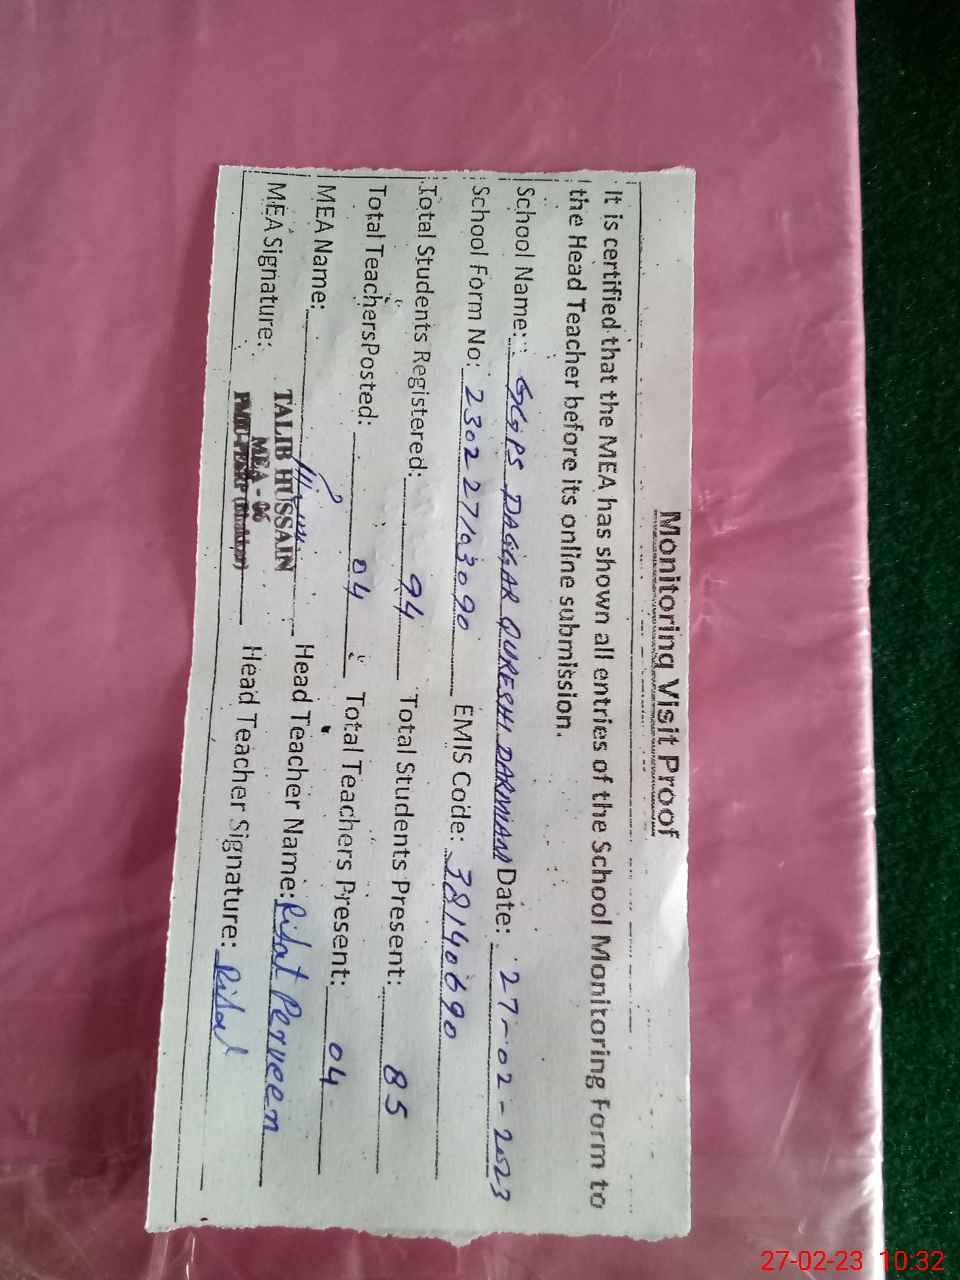 Monitoring Visit Proof
It is certified that the MEA has shown all entries of the School Monitoring Form to
the Head Teacher before its online submission.
School Name: GGPS DAGGAR QURESHI DARMIANI Date: 27-02-2023
School Form No: 230227103090 EMIS Code: 38140690
Total Students Registered: 94 Total Students Present: 85
Total Teachers Posted: 04 Total Teachers Present: 04
MEA Name: Head Teacher Name: Rifat Perveen
TALIB HUSSAIN
MEA Signature: MEA - 06 Head Teacher Signature: Rifat
27-02-23 10:32